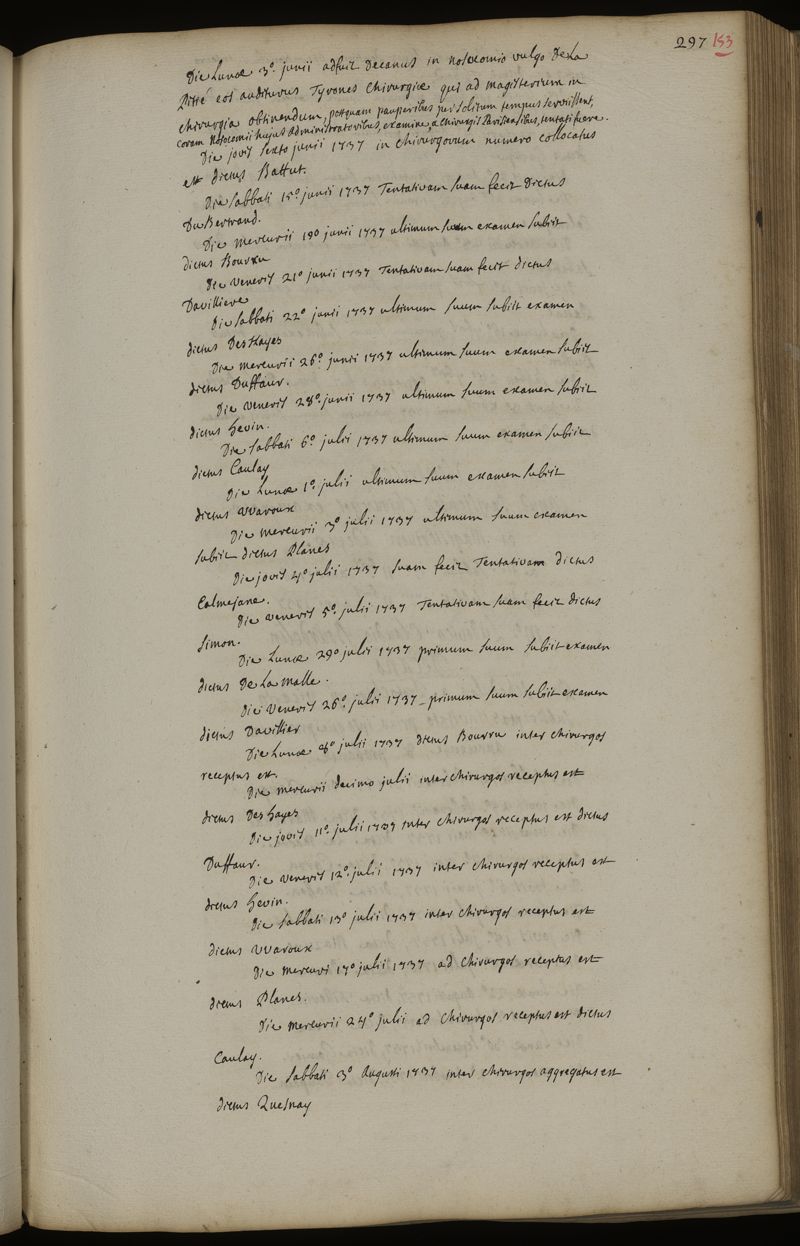 297 153
Die Lunæ 3º. junii adfuit Decanus in nosocomio vulgo De La
Pitié eos auditurus Tyrones Chirurgiæ qui ad magisterium in
chirurgia obtinendum, postquam pauperibus per solitum tempus servissent,
coram nosocomii hujus administratoribus, examine, a Chirurgis Parisiensibus, tentati fuere.
Die jovis sexto junii 1737 in chirurgorum numero collocatus
est dictus Battut.
Die sabbati 15º junii 1737 Tentativam suam fecit Dictus
Du Bertrand.
Die mercurii 19º junii 1737 ultimum suum examen subiit
dictus Bourru
Die veneris 21º junii 1737 Tentativam suam fecit dictus
Davilliere
Die sabbati 22º junii 1737 ultimum suum subiit examen
dictus DesHayes
Die mercurii 26º. junii 1737 ultimum suum examen subiit
dictus Duffaur.
Die veneris 28º. junii 1737 ultimum suum examen subiit
dictus hevin.
Die sabbati 6º julii 1737 ultimum suum examen subiit
dictus Caulay
Die Lunæ 1º. julii ultimum suum examen subiit
dictus VVaroux
Die mercurii 3º julii 1737 ultimum suum examen
subiit dictus Planes
Die jovis 4º julii 1737 suam fecit Tentativam dictus
Calmejane.
Die veneris 5º. julii 1737 Tentativam suam fecit dictus
simon.
Die Lunæ 29º julii 1737 primum suum subiit examen
dictus De La malle.
Die veneris 26º. julii 1737 primum suum subiit examen
dictus Davillier
Die Lunæ 8º julii 1737 dictus Bourru inter chirurgos
receptus est.
Die mercurii decimo julii inter chirurgos receptus est
dictus Des hayes
Die jovis 11º. julii 1737 inter chirurgos receptus est dictus
Duffaur.
Die veneris 12º. julii 1737 inter chirurgos receptus est
dictus hevin.
Die sabbati 13º julii 1737 inter chirurgos receptus est
dictus VVaroux
Die mercuri 17º julii 1737 ad chirurgos receptus est
dictus Planes.
Die mercurii 24º julii ad chirurgos receptus est dictus
Caulay.
Die sabbati 3º Augusti 1737 inter chirurgos aggregatus est
dictus Quesnay